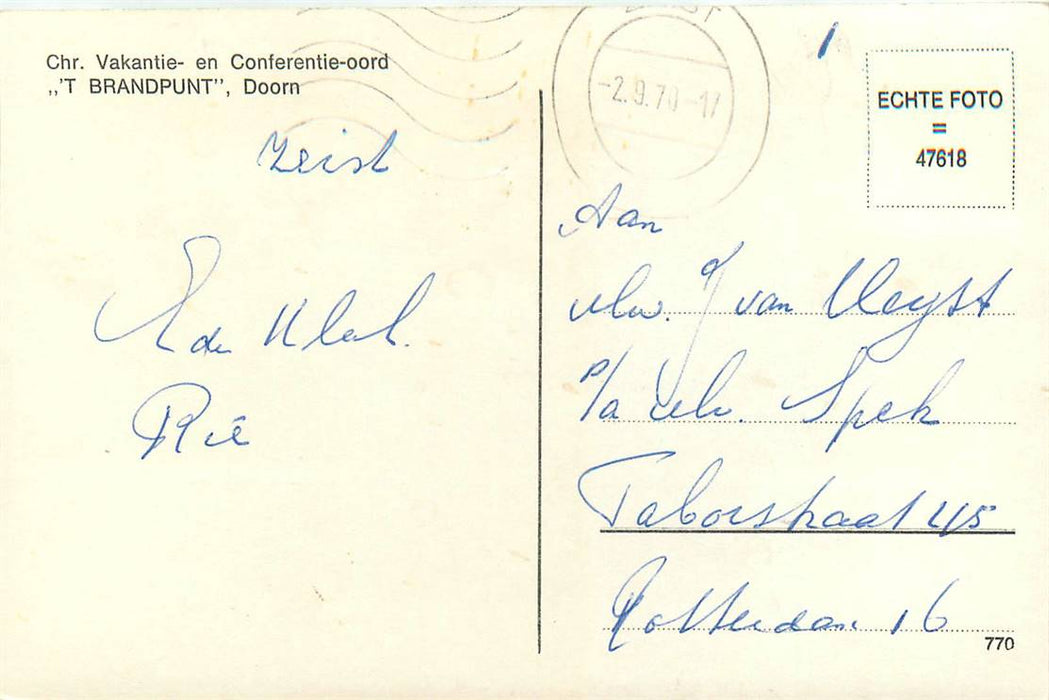 Chr. Vakantie- en Conferentie-oord
„'T BRANDPUNT”, Doorn
Zeist
de
Rie
-2.9.70-17
ECHTE FOTO
=
47618
Aan
van
p/a Spek
Taborstraat 45
Rotterdam 16
770